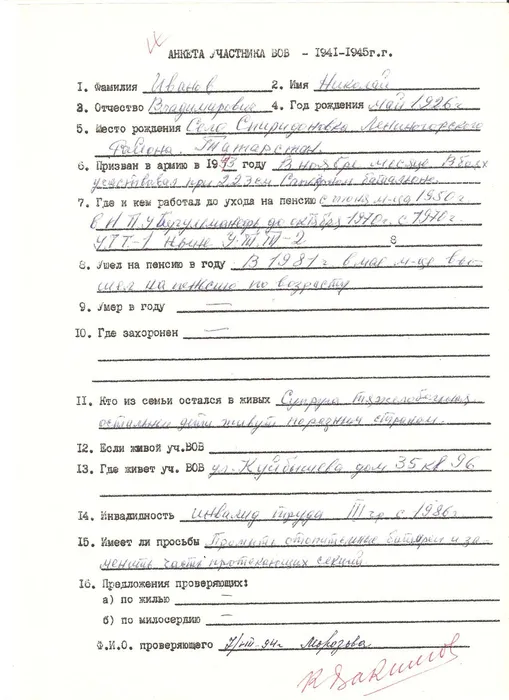 АНКЕТА УЧАСТНИКА ВОВ - 1941-1945г.г.
1. Фамилия Иванов 2. Имя Николай
3. Отчество Владимирович 4. Год рождения май 1926г
5. Место рождения Село Спиридоновка Лениногорского
района. Татарстан.
6. Призван в армию в 1943 году В ноябре месяце. В боях
участвовал при 223ем Саперном батальоне
7. Где и кем работал до ухода на пенсию с июня м-ца 1950г
в НПУ до октября 1970г. с 1970г.
УТТ-1 Ныне УТТ-2
8. Ушел на пенсию в году В 1981г. в мае м-це вы-
шел на пенсию по возрасту
9. Умер в году —
10. Где захоронен —
11. Кто из семьи остался в живых Супруга тяжелобольная,
остальные дети живут по разным странам.
12. Если живой уч. ВОВ
13. Где живет уч. ВОВ ул. Куйбышева дом 35 кв 96
14. Инвалидность инвалид труда III гр. с 1986г
15. Имеет ли просьбы Промыть отопительные батареи и за-
менить часть протекающих секций
16. Предложения проверяющих:
а) по жилью —
б) по милосердию —
Ф.И.О. проверяющего 7/III-94г Морозова